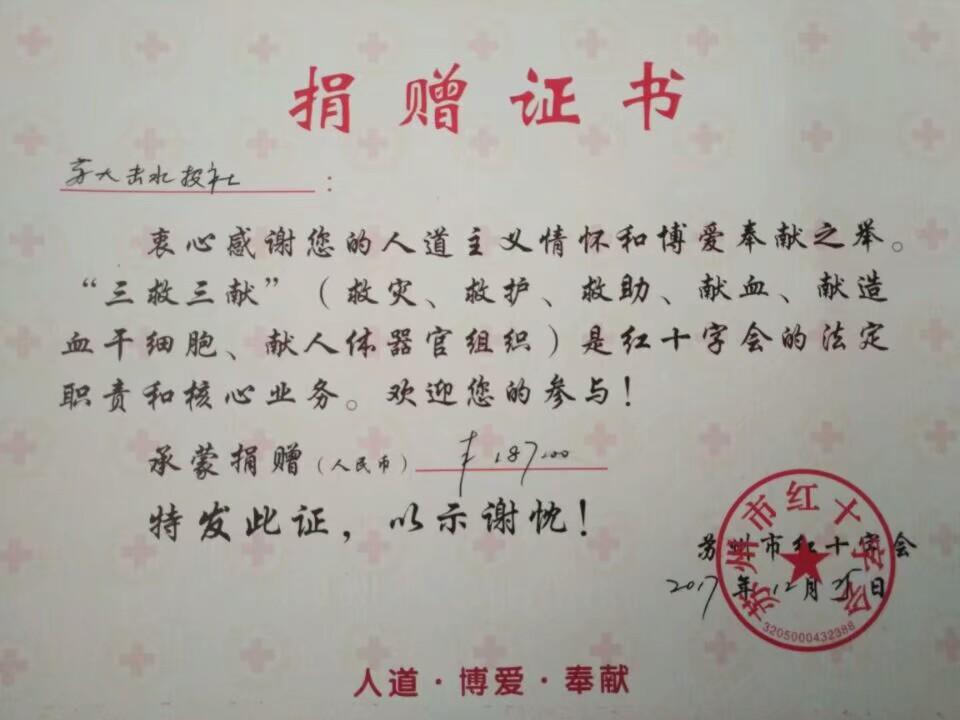 捐赠证书
苏大击水报社：
衷心感谢您的人道主义情怀和博爱奉献之举。
“三救三献”（救灾、救护、救助、献血、献造
血干细胞、献人体器官组织）是红十字会的法定
职责和核心业务。欢迎您的参与！
承蒙捐赠（人民币）¥187.00
特发此证，以示谢忱！
苏州市红十字会
苏州市红十字会
2017年12月25日
3205000432388
人道·博爱·奉献